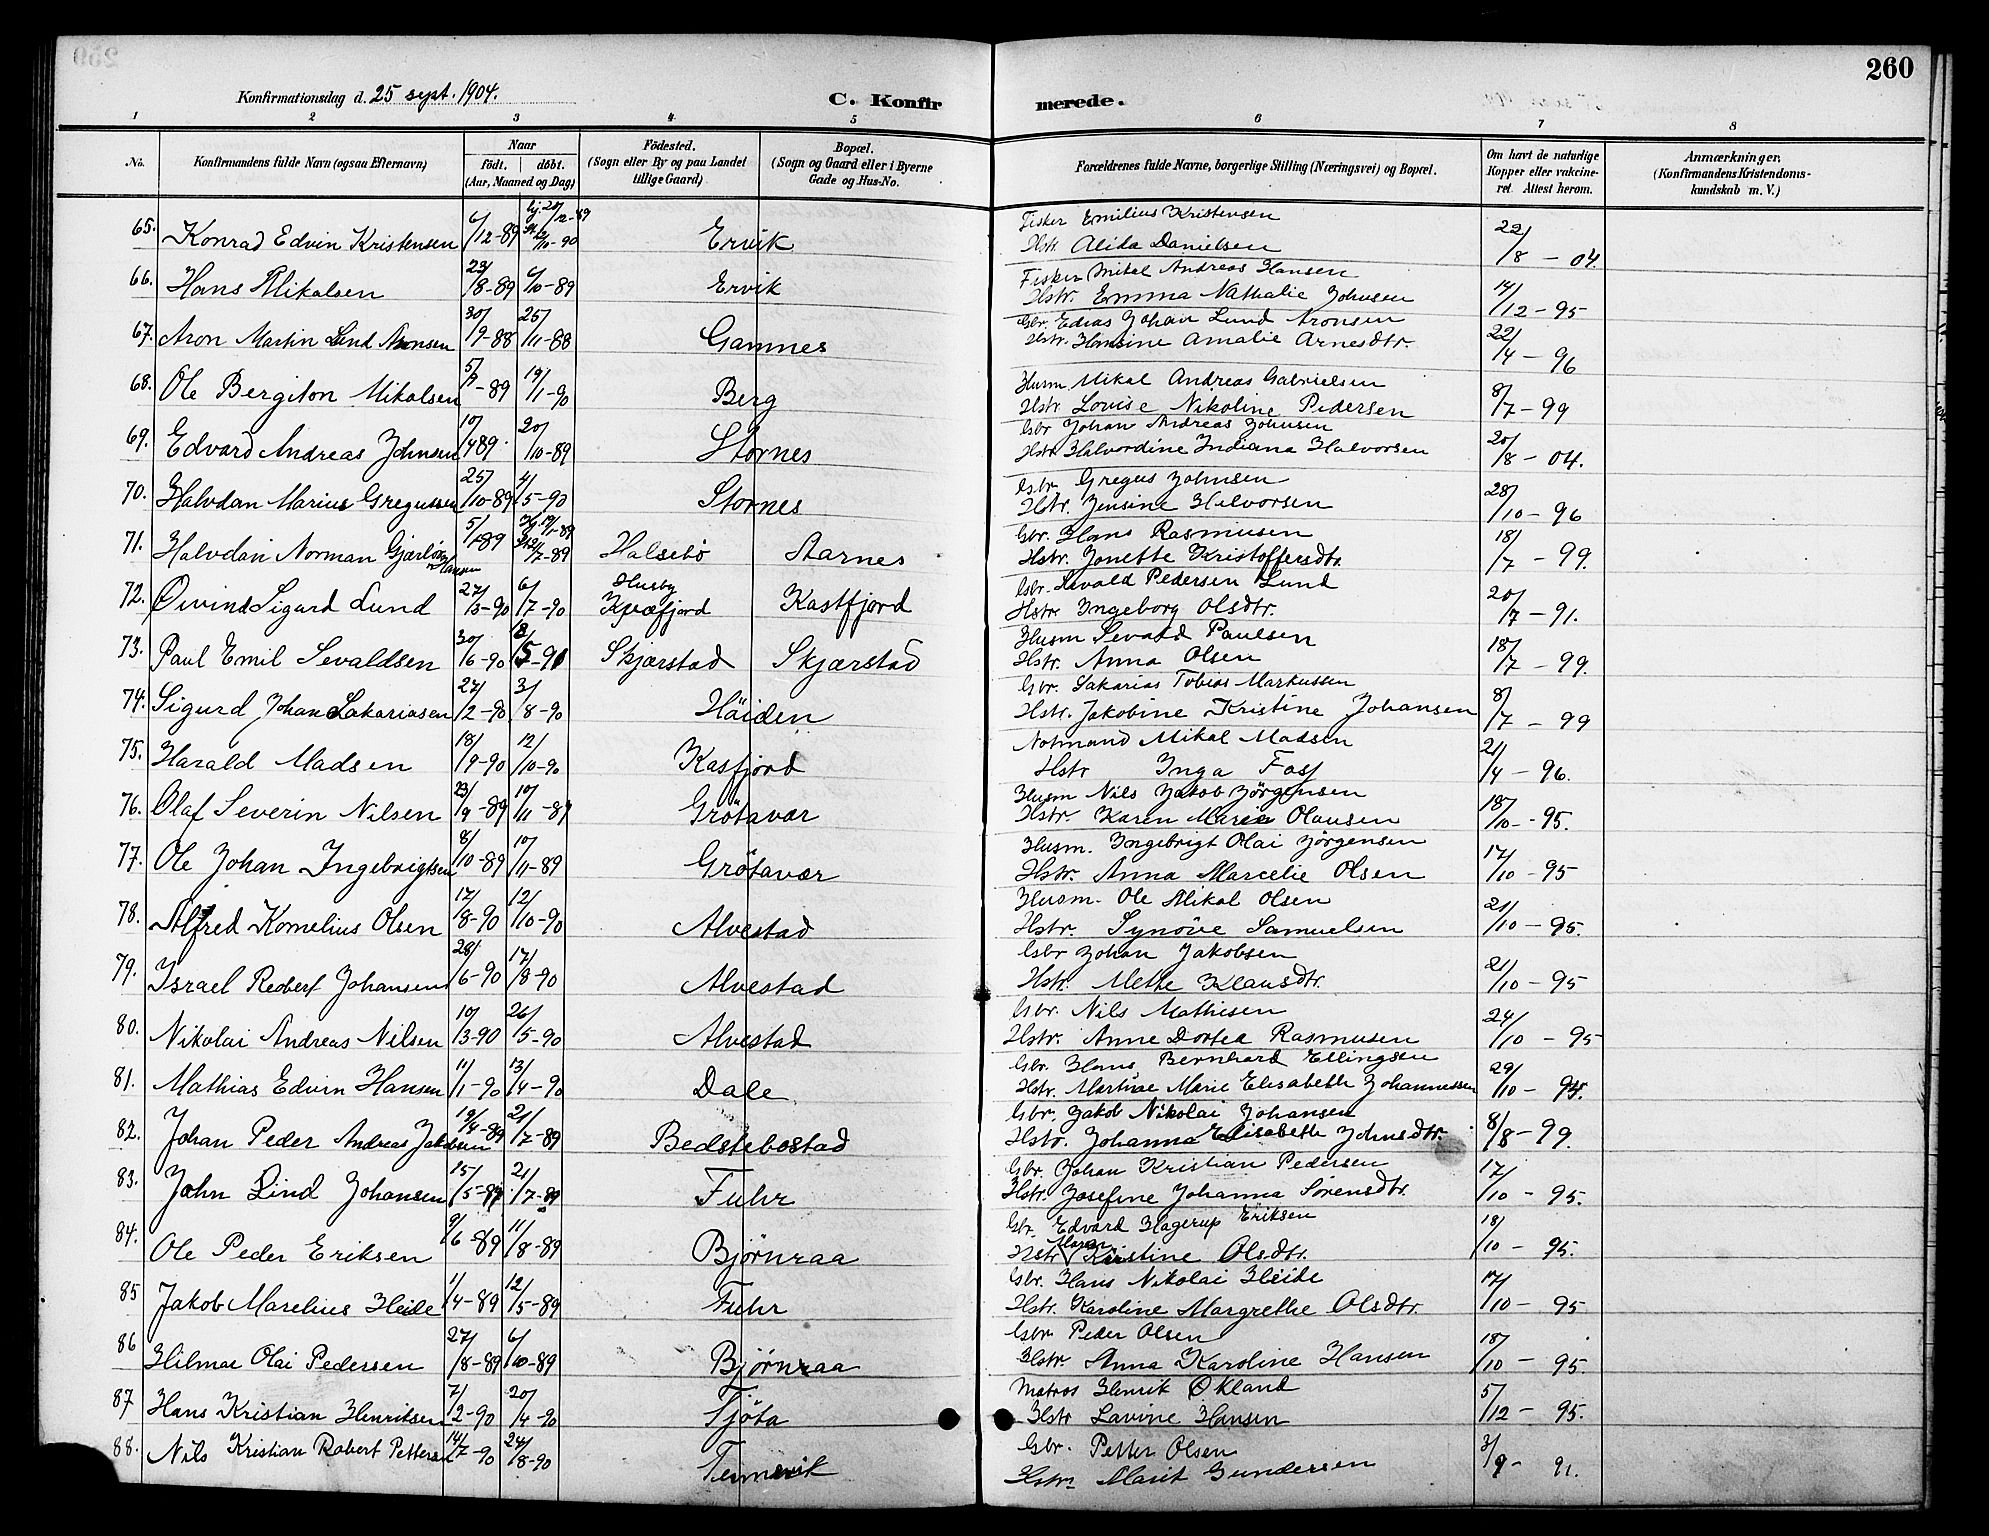 260
Konfirmationsdag d. 25 sept. 1904.
C. Konfirmerede.
1 2 3 4 5 6 7 8
No.
Konfirmandens fulde Navn (ogsaa Efternavn)
Naar
födt. döbt.
(Aar, Maaned og Dag)
Födested.
(Sogn eller By og paa Landet
tillige Gaard)
Bopæl.
(Sogn og Gaard eller i Byerne
Gade og Hus-No.
Forældrenes fulde Navne, borgerlige Stilling (Næringsvei) og Bopæl.
Om havt de naturlige
Kopper eller vakcine-
ret. Attest herom.
Anmærkninger.
(Konfirmandens Kristendoms-
kundskab m. V.)
65. Konrad Edvin Kristensen 6/12-89 hj. 20/12-89 Ervik Fisker Emilius Kristensen
Hstr. Alida Danielsen 22/8 - 04.
66. Hans Mikalsen 23/8-89 6/10-89 Ervik Fisker Mikal Andreas Hansen
Hstr. Emma Nathalie Johnsen 14/12-95
67. Aron Martin Lund Aronsen 30/9-88 25/11-88 Gamnes Gbr. Edias Johan Lund Aronsen
Hstr. Hansine Amalie Arnesdtr. 22/4 - 96
68. Ole Bergiton Mikalsen 5/7-89 19/1-90 Berg Husm. Mikal Andreas Gabrielsen
Hstr. Lovise Nikoline Pedersen 8/7-99
69. Edvard Andreas Johnsen 10/4 89. 20/10-89 Stornes Gbr Johan Andreas Johnsen
Hstr. Halvordine Indiana Halvorsen 20/8 - 04.
70. Halvdan Marius Gregussen 25/10-89 4/5-90 Stornes Gbr. Gregus Johnsen
Hstr. Jensine Halvorsen 28/10 - 96
71. Halvdan Norman Hansen 5/1-89 Halsebö Aarnes Gbr. Hans Rasmusen
Hstr. Jonette Kristoffersdtr. 18/7 - 99.
72. Øivind Sigard Lund 27/3-90 6/7-90 Husby Kvæfjord Kastfjord Gbr. Sevald Pedersen Lund
Hstr. Ingeborg Olsdtr. 20/7 - 91.
73. Paul Emil Sevaldsen 30/6-90 Skjærstad Skjærstad Husm Sevald Paulsen
Hstr. Anna Olsen 18/7 - 99.
74. Sigurd Johan Sakariasen 27/2-90 3/8-90 Häiden Gbr. Sakarias Tobias Markussen
Hstr. Jakobine Kristine Johansen 8/7 - 99
75. Harald Madsen 18/9-90 12/10-90 Kasfjord Notmand Mikal Madsen
Hstr Inga Foss 21/4 - 96.
76. Olaf Severin Nilsen 23/9-89 10/11-89 Grötavær Husm Nils Jakob Jörgensen
Hstr. Karen Marie Olausen 18/10 -95.
77. Ole Johan Ingebrigtsen 8/10-89 10/11-89 Grötavær Husm. Ingebrigt Olai Jörgensen
Hstr. Anna Marcelie Olsen 17/10 - 95
78. Alfred Kornelius Olsen 17/8-90 12/10-90 Alvestad Husm. Ole Mikal Olsen
Hstr. Synöve Samuelsen 21/10 - 95.
79. Israel Robert Johansen 28/6-90 17/8-90 Alvestad Gbr Johan Jakobsen
Hstr. Mette Klausdtr. 21/10 - 95
80. Nikolai Andreas Nilsen 10/3-90 26/5-90 Alvestad Gbr. Nils Mathisen
Hstr. Anne Dortea Rasmusen 24/10 - 95
81. Mathias Edvin Hansen 11/1-90 13/4-90 Dale Gbr. Hans Bernhard Ellingsen
Hstr. Martine Marie Elisabeth Johannessen 29/10 - 95.
82. Johan Peder Andreas Jakobsen 19/4-89 21/7-89 Bedstebostad Gbr. Jakob Nikolai Johansen
Hstr. Johanna Elisabeth Johnsdtr. 8/8-99.
83. John Lind Johansen 15/5-89 21/7-89 Fuhr Gbr Johan Kristian Pedersen
Hstr. Josefine Johanna Sörensdtr. 17/10 - 95.
84. Ole Peder Eriksen 9/6-89 11/8-89 Bjørnraa Gbr. Edvard Hagerup Eriksen
Hstr Maren Kirstine Olsdtr. 18/10 - 95.
85 Jakob Marelius Heide 1/4-89 12/5-89 Fuhr Gbr. Hans Nikolai Heide
Hstr. Karoline Margrethe Olsdtr. 17/10 - 95
86 Hilmar Olai Pedersen 27/8-89 6/10-89 Bjørnraa Gbr Peder Olsen
Hstr. Anna Karoline Hansen 18/10 - 95.
87 Hans Kristian Henriksen 7/2-90 20/4-90 Tjöta Matros Henrik Økland
Hstr Lavine Hansen 5/12 - 95.
88. Nils Kristian Robert Pettersen 14/7-90 24/8-90 Gbr. Petter Olsen
Hstr. Marit Gundersen 3/9 - 91.